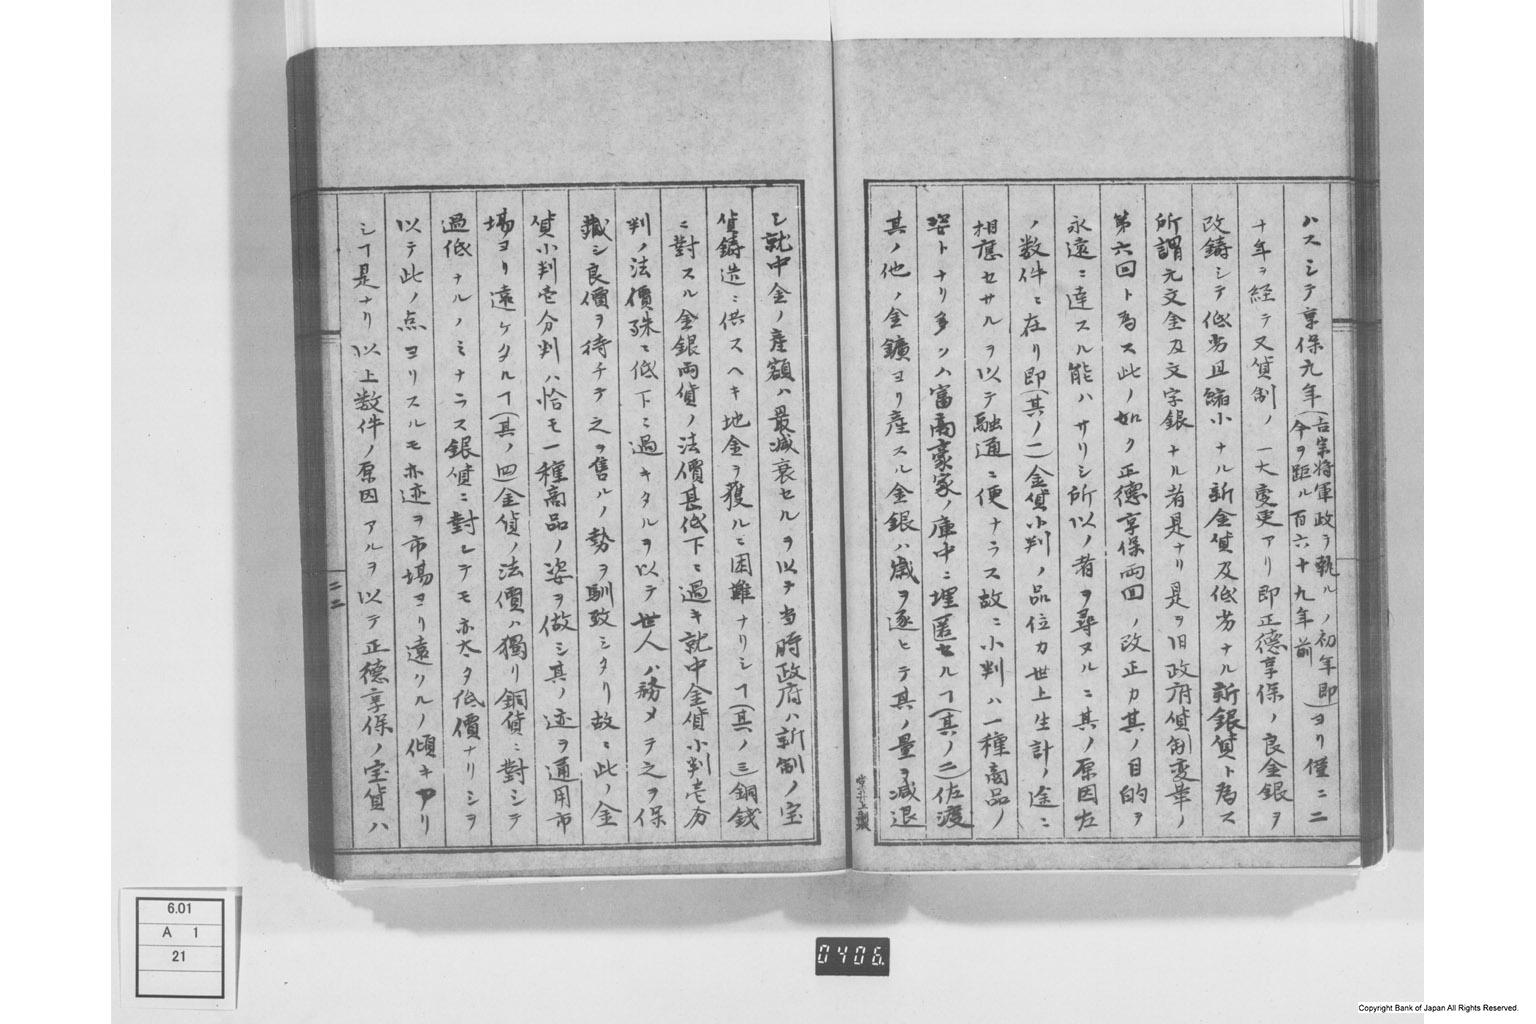 ハスシテ享保元年(吉宗将軍政ヲ執ルノ初年即今ヲ距ル百六十九年前)ヨリ僅ニ二
十年ヲ経テ又貨制ノ一大変更アリ即正德享保ノ良金銀ヲ
改鋳シテ低劣且縮小ナル新金貨及低劣ナル新銀貨ト為ス
所謂元文金及文字銀ナル者是ナリ是ヲ旧政府貨制変革ノ
第六回ト為ス此ノ如ク正德享保両回ノ改正カ其ノ目的ヲ
永遠ニ達スル能ハサリシ所以ノ者ヲ尋ヌルニ其ノ原因左
ノ数件ニ在リ即(其ノ一)金貨小判ノ品位カ世上生計ノ途ニ
相應セサルヲ以テ融通ニ便ナラス故ニ小判ハ一種商品ノ
姿トナリ多クハ富商豪家ノ庫中ニ埋匿セルヿ(其ノ二)佐渡
其ノ他ノ金鑛ヨリ産スル金銀ハ歳ヲ逐ヒテ其ノ量ヲ減退
シ就中金ノ産額ハ最減衰セルヲ以テ当時政府ハ新制ノ宝
貨鋳造ニ供スヘキ地金ヲ獲ルニ困難ナリシヿ(其ノ三)銅銭
ニ對スル金銀両貨ノ法價甚低下ニ過キ就中金貨小判壱分
判ノ法價殊ニ低下ニ過キタルヲ以テ世人ハ務メテ之ヲ保
藏シ良價ヲ待チテ之ヲ售ルノ勢ヲ馴致シタリ故ニ此ノ金
貨小判壱分判ハ恰モ一種商品ノ姿ヲ做シ其ノ迹ヲ通用市
場ヨリ遠ケタルヿ(其ノ四)金貨ノ法價ハ獨リ銅貨ニ對シテ
過低ナルノミナラス銀貨ニ對シテモ亦太タ低價ナリシヲ
以テ此ノ点ヨリスルモ亦迹ヲ市場ヨリ遠クルノ傾キアリ
シヿ是ナリ以上数件ノ原因アルヲ以テ正德享保ノ宝貨ハ
二二
6.01
A 1
21
0406
Copyright Bank of Japan All Rights Reserved.